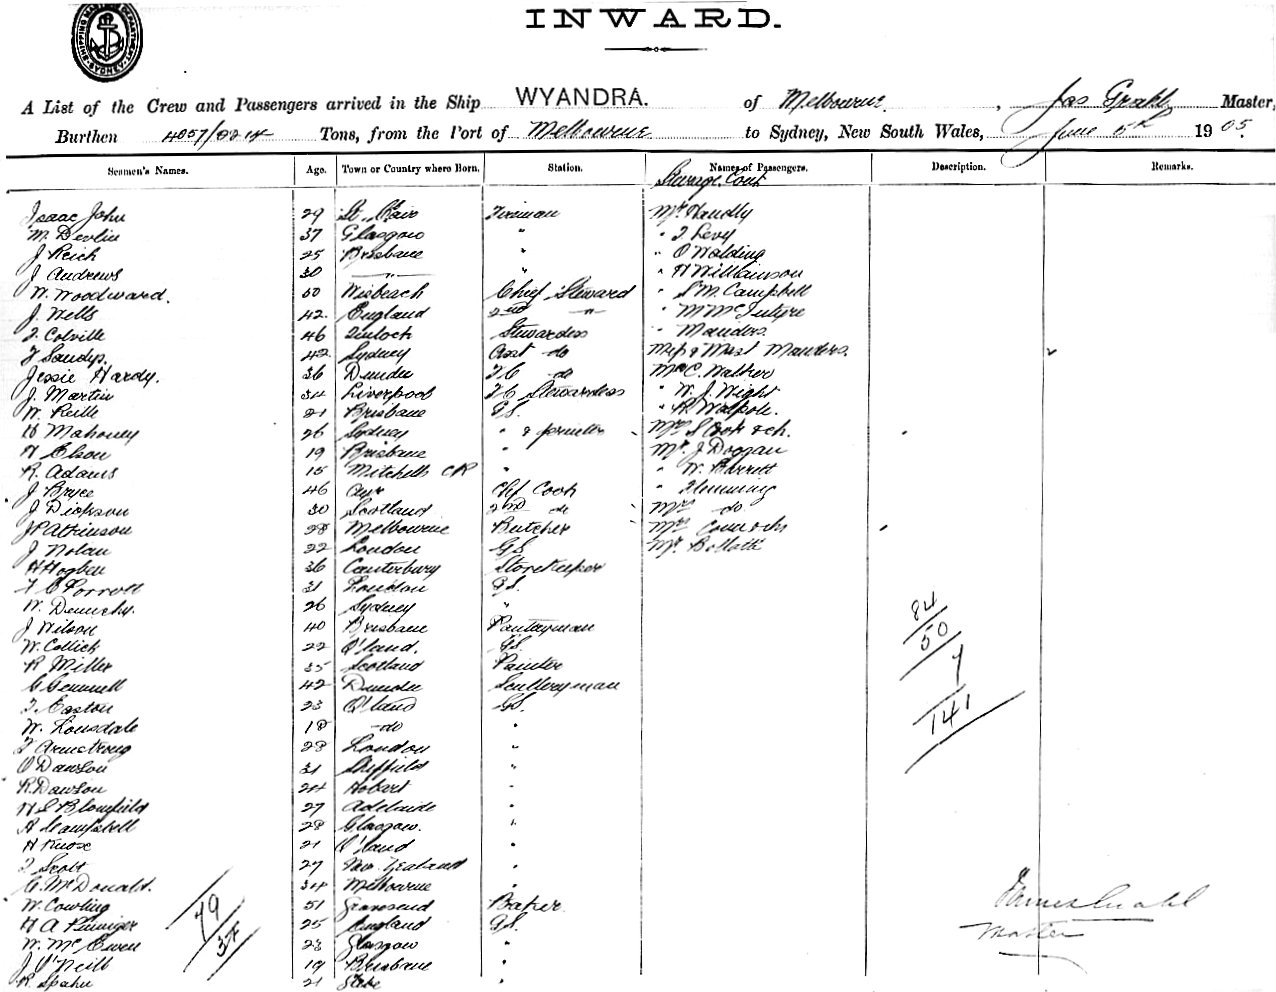 SHIPPING MASTER'S DEPARTMENT SYDNEY
INWARD.
A List of the Crew and Passengers arrived in the Ship WYANDRA. of Melbourne, Jas Grahl Master,
Burthen 4057/ Tons, from the Port of Melbourne to Sydney, New South Wales, June 5th 1905.
Seamen's Names. Age. Town or Country where Born. Station. Names of Passengers. Description. Remarks.
Steerage Cont
Isaac John 29 Fireman Mr Handly
M. Devlin 37 Glasgow " " J Levy
J Reich 25 Brisbane " " O Walding
J Andrews 30 " " " H Williamson
W. Woodward. 50 Wisbeach Chief Steward " S M. Campbell
J. Nells 42. England 2nd " " M McIntyre
J. Colville 46 Stewardess " Manders
F Sandys. 42 Sydney Asst do Mrs & Mast Manders.
Jessie Hardy. 36 Dundee do Mr C. Walker
J. Martin 34 Liverpool Stewardess " W. J. Wight
W. Reille 21 Brisbane GS. " R. Walpole.
H Mahoney 26 Sydney " & Mrs S Cook & ch.
H Elson 19 Brisbane " Mr J Doogan
R. Adams 15 Mitchells CK " " W. Barrett
J Bryce 46 Ayr Chf Cook " Flemming
J Dickson 30 Scotland 2nd do Mrs do
J P Atkinson 28 Melbourne Butcher Mrs
J Nolan 22 London GS Mr.
H Hogben 36 Canterbury Storekeeper
31 London GS.
W. 26 Sydney "
J Wilson 40 Brisbane Pantryman
W. Collick 22 Q'land. GS.
R Miller 35 Scotland Painter
G Gemmell 42 Dundee Scullery man
J. Easton 23 Q'land GS.
W. Lonsdale 18 do "
J Armstrong 28 London "
O Dawson 31 Sheffield "
R Dawson 24 Hobart "
H S Blomfield 27 Adelaide "
A Campbell 28 Glasgow. "
H Knose 21 Q'land "
J Scott 27 New Zealand "
C. McDonald. 34 Melbourne "
W. Cowling 51 Gravesend Baker
H A Pinniger 25 England GS.
W. McEwen 23 Glasgow "
J O'Neill 19 Brisbane "
R. Spahn 21 "
84
50
7
141
49
37
James Grahl
Master